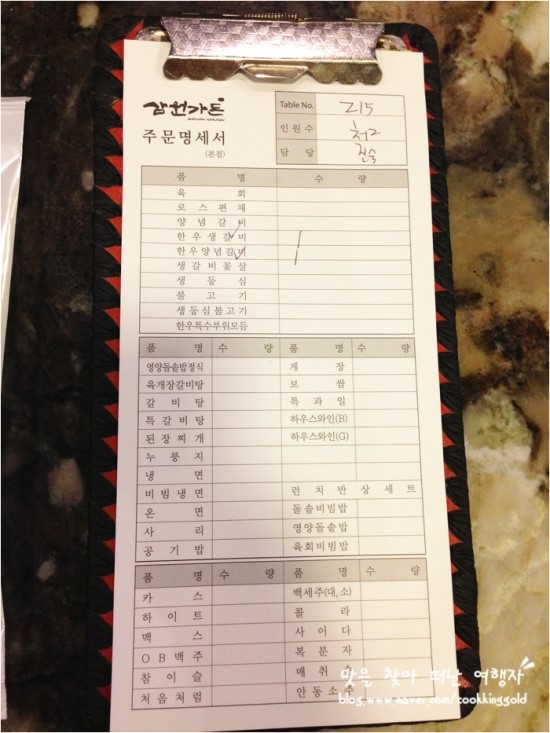 삼원가든
주문명세서
(본점)
Table No. 215
인원수
담당
품 명 수 량
육 회
로 스 편 채
양 념 갈 비
한 우 생 갈 비
한 우 양 념 갈 비
생 갈 비 꽃 살
생 등 심
불 고 기
생 등 심 불 고 기
한우특수부위모듬
품 명 수 량 품 명 수 량
영양돌솥밥정식 게 장
육개장갈비탕 보 쌈
갈 비 탕 특 과 일
특 갈 비 탕 하우스와인(B)
된 장 찌 개 하우스와인(G)
누 룽 지
냉 면
비 빔 냉 면 런 치 반 상 세 트
온 면 돌솥비빔밥
사 리 영양돌솥밥
공 기 밥 육회비빔밥
품 명 수 량 품 명 수 량
카 스 백세주(대, 소)
하 이 트 콜 라
맥 스 사 이 다
O B 맥 주 복 분 자
참 이 슬 매 취 순
처 음 처 럼 안 동 소 주
맛을 찾아 떠난 여행자
blog.www.naver.com/cookkinggold